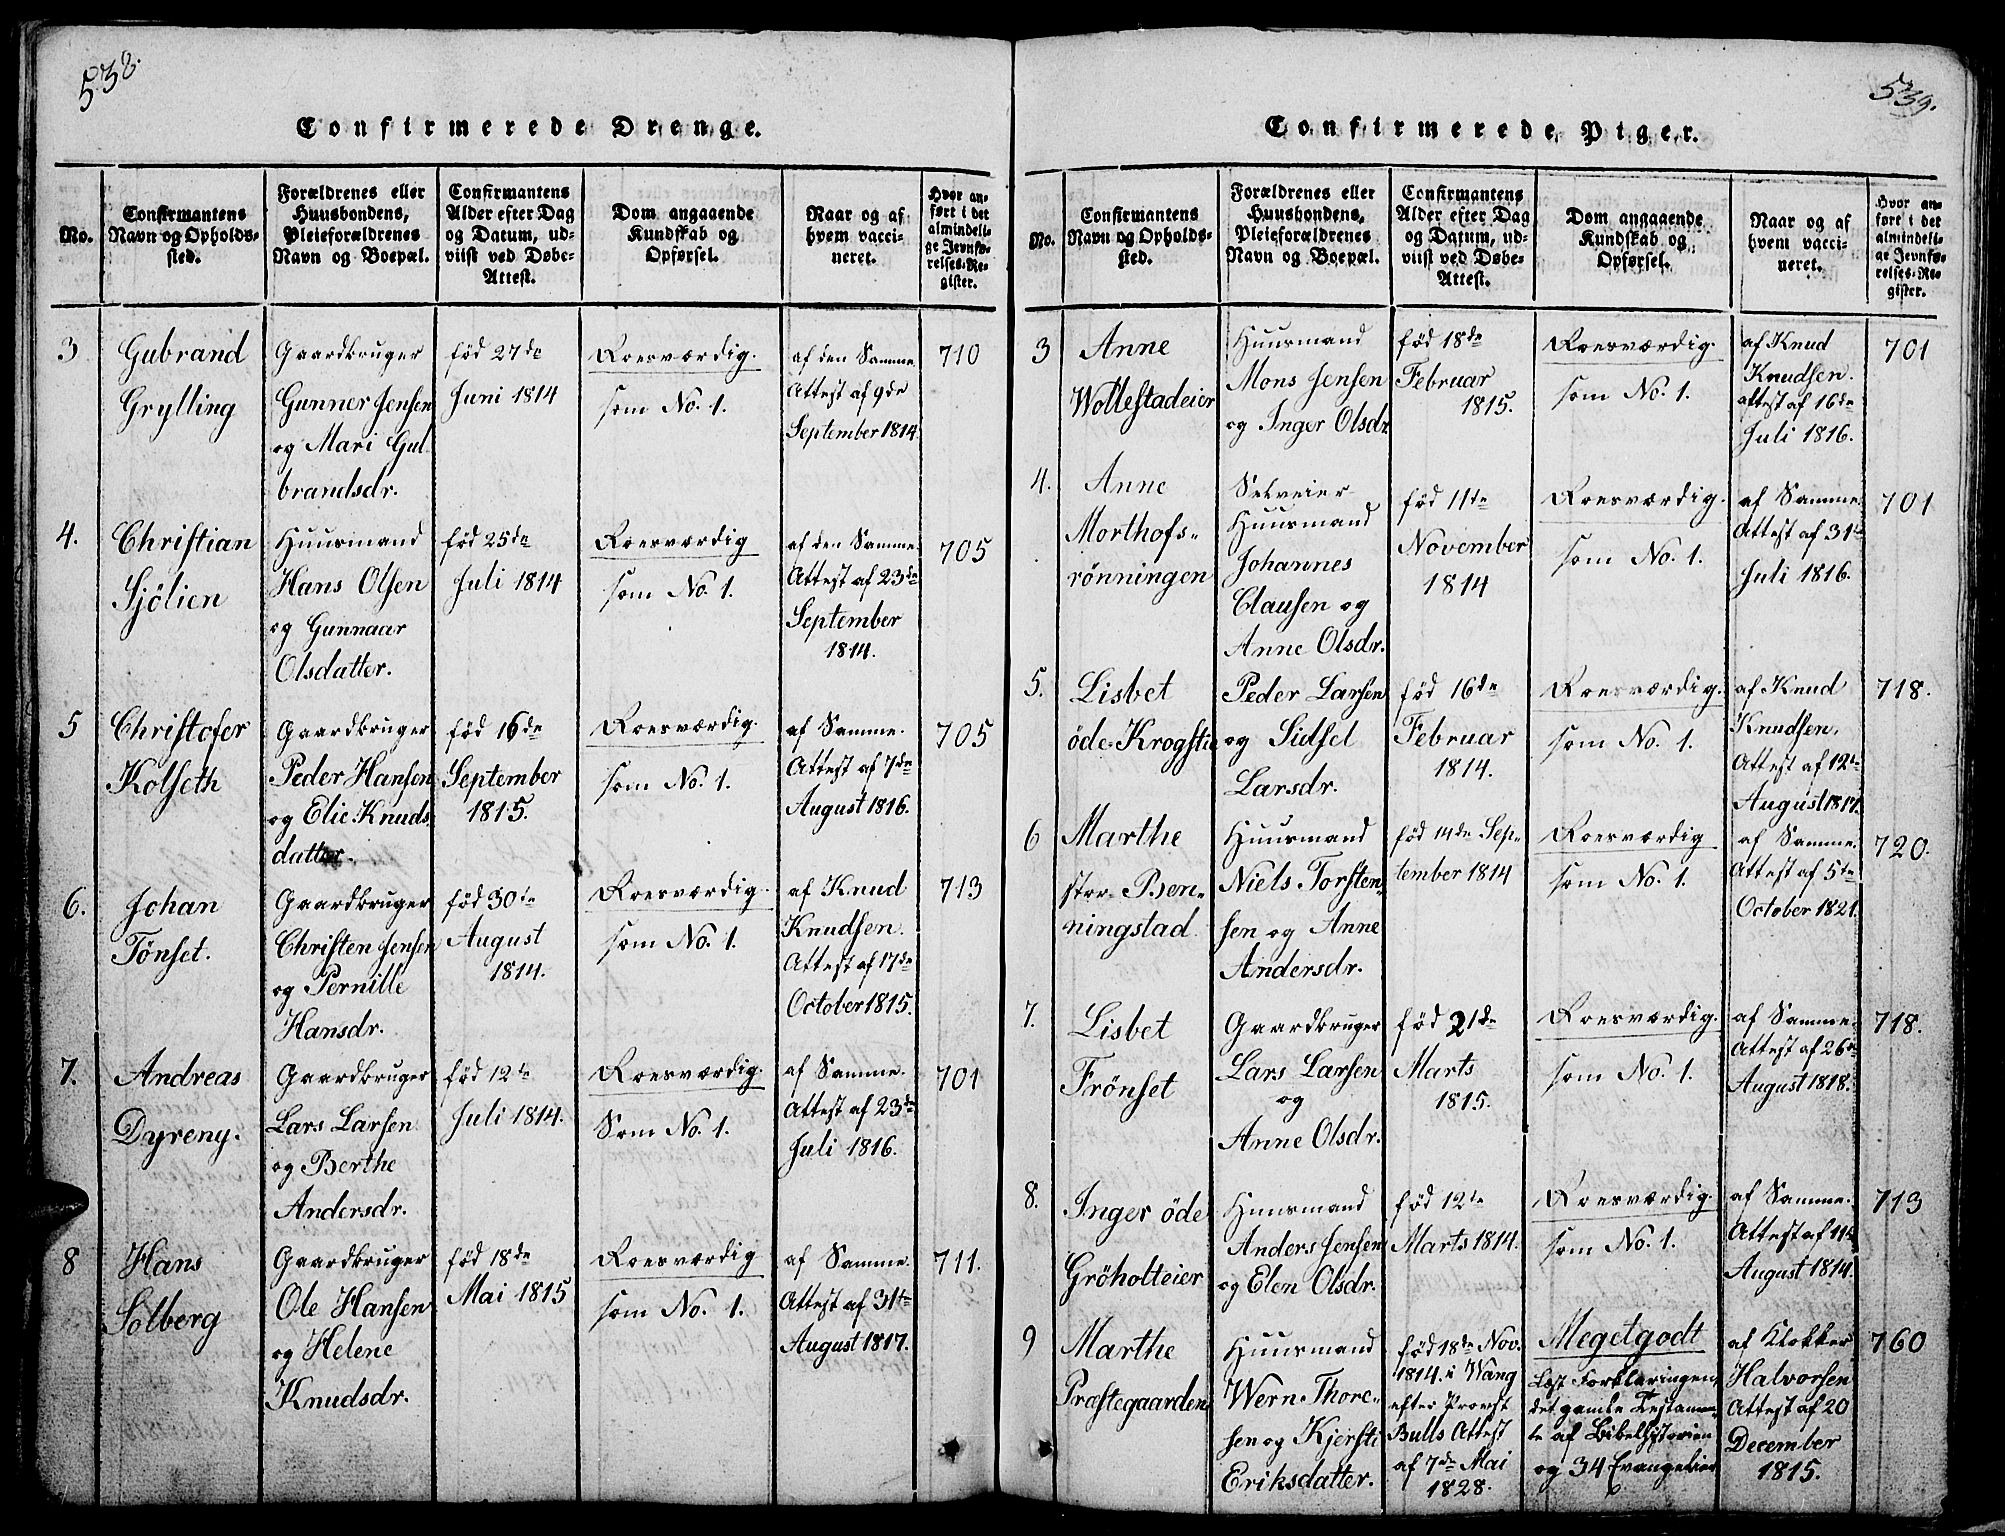 538.
Confirmerede Drenge.
No.
Confirmantens
Navn og Opholds-
sted.
Forældrenes eller
Huusbondens,
Pleieforældrenes
Navn og Boepæl.
Confirmantens
Alder efter Dag
og Datum, ud-
viist ved Døbe-
Attest.
Dom angaaende
Kundskab og
Opførsel.
Naar og af
hvem vacci-
neret.
Hvor an-
ført i det
almindeli-
ge Jevnfø-
relses-Re-
gister.
3
Gubrand
Grylling
Gaardbruger
Gunner Jensen
og Mari Gul
brandsdr.
fød 27de
Juni 1814
Roesværdig.
som No. 1.
af den Samme
Attest af 9de
September 1814.
710
4.
Christian
Sjölien
Huusmand
Hans Olsen
og Gunnaar
Olsdatter.
fød 25de
Juli 1814
Roesværdig
som No. 1.
af den Samme.
Attest af 23de
September
1814.
705
5
Christofer
Kolseth
Gaardbruger
Peder Hansen
og Elie Knuds
datter.
fød 16de
September
1815.
Roesværdig.
som No. 1.
af Samme.
Attest af 7de
August 1816.
705
6.
Johan
Tönset.
Gaardbruger
Christen Jensen
og Pernille
Hansdr.
fød 30te
August
1814.
Roesværdig.
som No. 1.
af Knud
Knudsen.
Attest af 17de
October 1815.
713
7.
Andreas
Dyreny.
Gaardbruger
Lars Larsen
og Berthe
Andersdr.
fød 12te
Juli 1814.
Roesværdig.
Som No. 1.
af Samme.
Attest af 23de
Juli 1816.
701
8
Hans
Solberg
Gaardbruger
Ole Hansen
og Helene
Knudsdr.
fød 18de
Mai 1815
Roesværdig
som No. 1.
af Samme.
Attest af 31te
August 1817.
711.
539.
Confirmerede Piger.
No.
Confirmantens
Navn og Opholds-
sted.
Forældrenes eller
Huusbondens,
Pleieforældrenes
Navn og Boepæl.
Confirmantens
Alder efter Dag
og Datum, ud-
viist ved Døbe-
Attest.
Dom angaaende
Kundskab og
Opførsel.
Naar og af
hvem vacci-
neret.
Hvor an-
ført i det
almindeli-
ge Jevnfø-
relses-Re-
gister.
3
Anne
Wollestadeier
Huusmand
Mons Jensen
og Inger Olsdr
fød 18de
Februar
1815.
Roesværdig.
som No. 1.
af Knud
Knudsen.
attest af 16de
Juli 1816.
701
4.
Anne
Morthofs-
rönningen
Selveier
Huusmand
Johannes
Clausen og
Anne Olsdr.
fød 11te
November
1814
Roesværdig.
som No. 1.
af Samme.
Attest af 31te
Juli 1816.
701
5.
Lisbet
öde-Krogstie
Peder Larsen
og Sidsel
Larsdr.
fød 16de
Februar
1814.
Roesværdig.
som No. 1.
af Knud
Knudsen.
Attest af 12te
August 1817.
718.
6
Marthe
stor-Ben-
ningstad.
Huusmand
Niels Torsten-
sen og Anne
Andersdr.
fød 14de Sep-
tember 1814
Roesværdig
som No. 1.
af Samme.
Attest af 5te
October 1821.
720.
7.
Lisbet
Frönset
Gaardbruger
Lars Larsen
og
Anne Olsdr.
fød 21de
Marts
1815.
Roesværdig.
som No. 1.
af Samme.
Attest af 26de
August 1818.
718.
8.
Inger öde
Gröholteier
Huusmand
Anders Jensen
og Elen Olsdr.
fød 12te
Marts 1814.
Roesværdig.
som No. 1.
af Samme.
Attest af 11te
August 1814.
713
9
Marthe
Præstegaarden
Huusmand
Wern-Thore-
sen og Kjersti
Eriksdatter.
fød 18de Nov.
1814. i Wang
efter Provst
Bulls Attest
af 7de Mai
1828.
Megetgodt
Læst Forklaringen,
det gamle Testamen-
te af Bibelhistorien
og 34 Evangelier
af Klokker
Halvorsen
Attest af 20
December
1815.
760